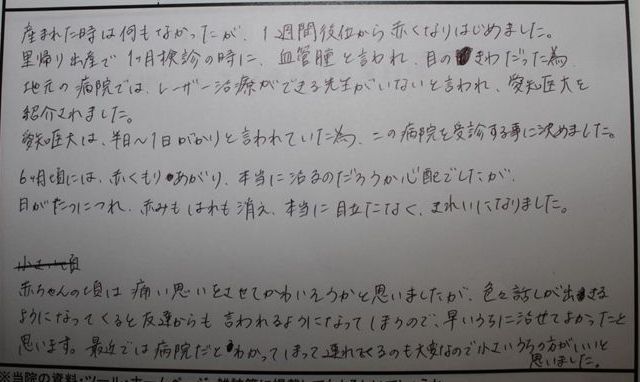 産まれた時は何もなかったが、1週間後位から赤くなりはじめました。
里帰り出産で1ヶ月検診の時に、血管腫と言われ、目のきわだった為、
地元の病院では、レーザー治療ができる先生がいないと言われ、愛知医大を
紹介されました。
愛知医大は、半日〜1日がかりと言われていた為、この病院を受診する事に決めました。
6ヶ月頃には、赤くもりあがり、本当に治るのだろうか心配でしたが、
日がたつにつれ、赤みもはれも消え、本当に目立たなく、きれいになりました。
小さい頃
赤ちゃんの頃は痛い思いをさせてかわいそうかと思いましたが、色々話しが出きる
ようになってくると友達からも言われるようになってしまうので、早いうちに治せてよかったと
思います。最近では病院だとわかってしまって連れてくるのも大変なので小さいうちの方がいいと
思いました。
※当院の資料・ツール・ホームページ・雑誌等に掲載